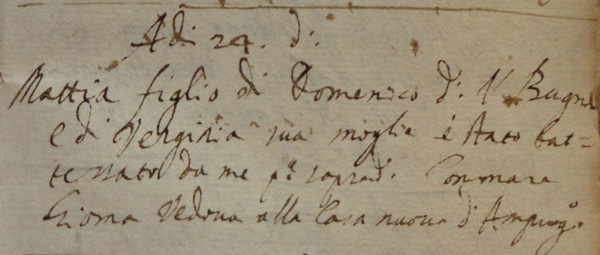 Adi 24. d:
Mattia figlio di Domenico d: V Bugni
e di Verginia sua moglie è stato bat=
tezzato da me pe soprad. Commara
Gioma Vedova alla Casa nuova d'Ampug.